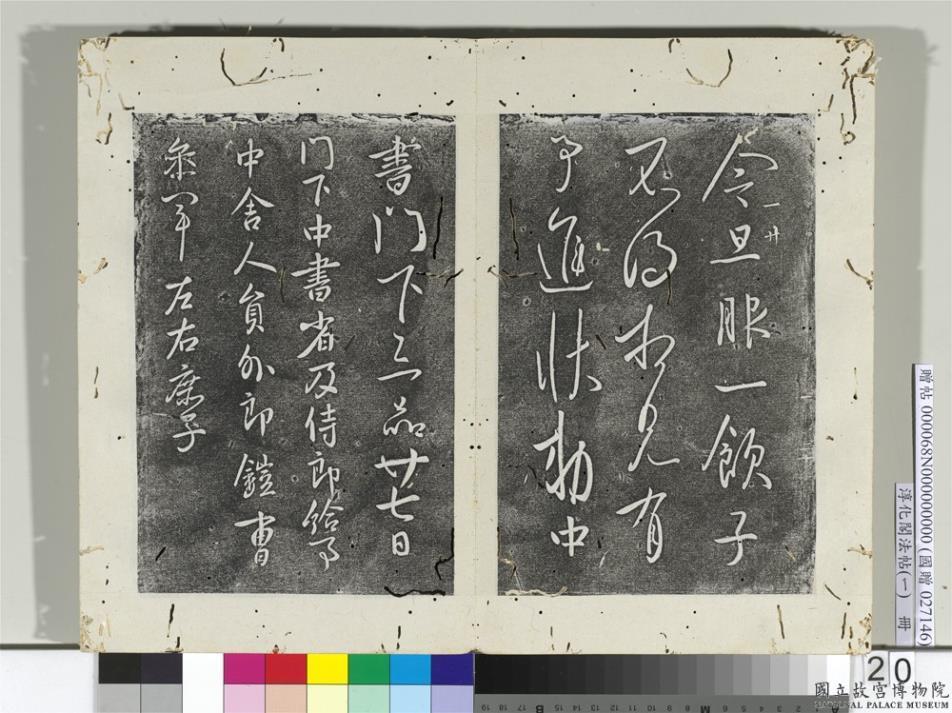 今旦服一飲子
一廾
不得相見有
事進狀勅中
書門下三品廿七日
門下中書省及侍郎給事
中舍人員外郎鎧曹
參軍左右庶子
贈帖 000068N000000000 (國贈 027146)
淳化閣法帖(一) 冊
20
國立故宮博物院
NATIONAL PALACE MUSEUM